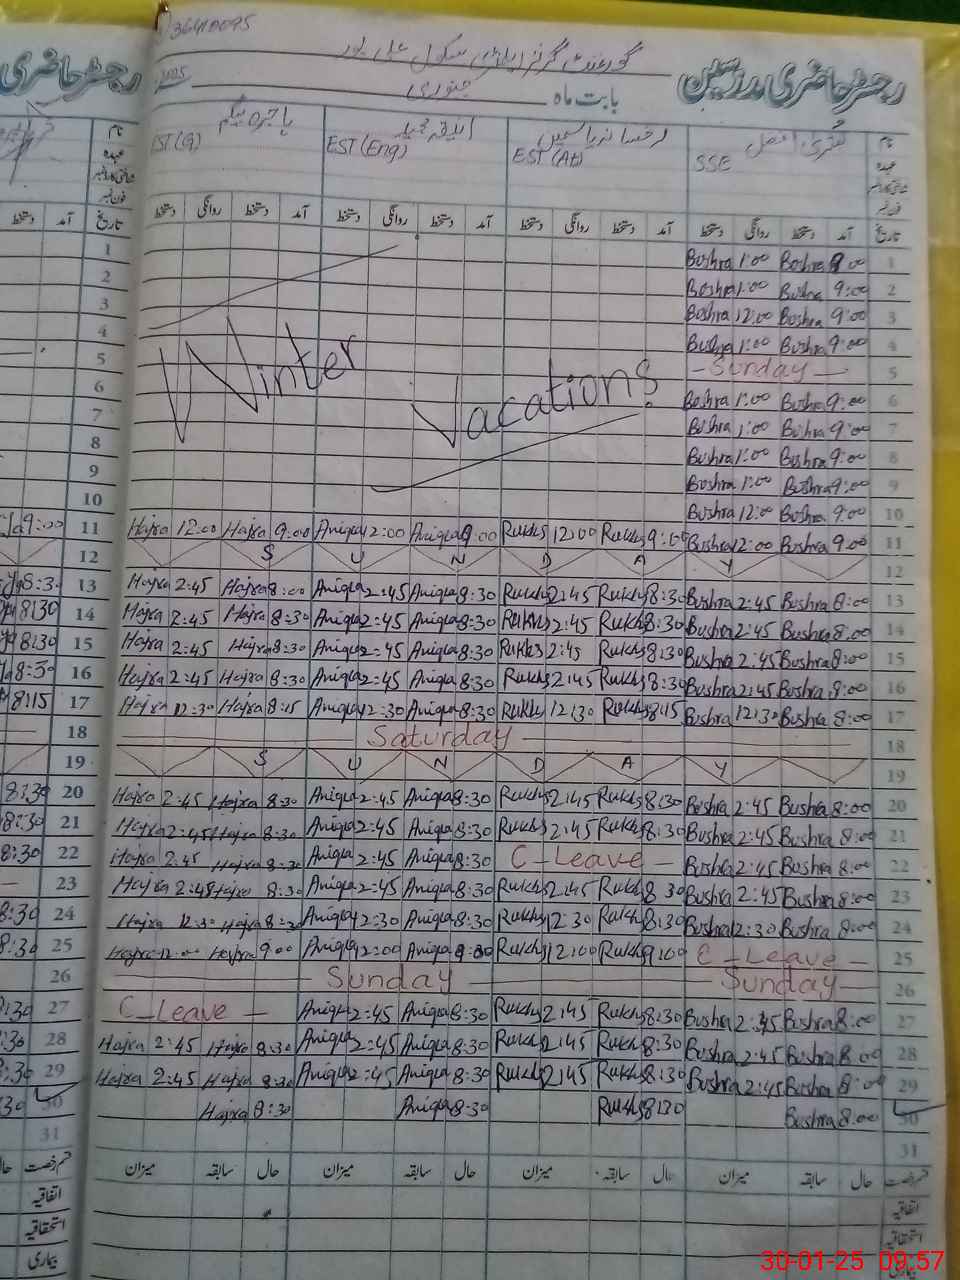 36410095
گورنمنٹ گرلز ایلیمنٹری سکول علی پور
رجسٹر حاضری مدرسین
2025 جنوری بابت ماہ
نام
عہدہ
SSE
EST (At)
EST (Eng)
تاریخ آمد دستخط روانگی دستخط آمد دستخط روانگی دستخط آمد دستخط روانگی دستخط آمد دستخط روانگی دستخط
1 Bushra 1:00 Bushra 9:00 1
2 Bushra 1:00 Bushra 9:00 2
3 Bushra 12:00 Bushra 9:00 3
4 Bushra 1:00 Bushra 9:00 4
5 - Sunday - 5
Winter Vacations
6 Bushra 1:00 Bushra 9:00 6
7 Bushra 1:00 Bushra 9:00 7
8 Bushra 1:00 Bushra 9:00 8
9 Bushra 1:00 Bushra 9:00 9
10 Bushra 12:00 Bushra 9:00 10
9:00 11 Hajra 12:00 Hajra 9:00 Aniqa 12:00 Aniqa 9:00 Rukhs 12:00 Rukhs 9:00 Bushra 12:00 Bushra 9:00 11
12 S U N D A Y 12
8:30 13 Hajra 2:45 Hajra 8:00 Aniqa 2:45 Aniqa 8:30 Rukhs 2:45 Rukhs 8:30 Bushra 2:45 Bushra 8:00 13
8:30 14 Hajra 2:45 Hajra 8:30 Aniqa 2:45 Aniqa 8:30 Rukhs 2:45 Rukhs 8:30 Bushra 2:45 Bushra 8:00 14
8:30 15 Hajra 2:45 Hajra 8:30 Aniqa 2:45 Aniqa 8:30 Rukhs 2:45 Rukhs 8:30 Bushra 2:45 Bushra 8:00 15
8:30 16 Hajra 2:45 Hajra 8:30 Aniqa 2:45 Aniqa 8:30 Rukhs 2:45 Rukhs 8:30 Bushra 2:45 Bushra 8:00 16
8:15 17 Hajra 12:30 Hajra 8:15 Aniqa 12:30 Aniqa 8:30 Rukhs 12:30 Rukhs 8:15 Bushra 12:30 Bushra 8:00 17
18 Saturday 18
19 S U N D A Y 19
8:30 20 Hajra 2:45 Hajra 8:30 Aniqa 2:45 Aniqa 8:30 Rukhs 2:45 Rukhs 8:30 Bushra 2:45 Bushra 8:00 20
8:30 21 Hajra 2:45 Hajra 8:30 Aniqa 2:45 Aniqa 8:30 Rukhs 2:45 Rukhs 8:30 Bushra 2:45 Bushra 8:00 21
8:30 22 Hajra 2:45 Hajra 8:30 Aniqa 2:45 Aniqa 8:30 C-Leave - Bushra 2:45 Bushra 8:00 22
23 Hajra 2:45 Hajra 8:30 Aniqa 2:45 Aniqa 8:30 Rukhs 2:45 Rukhs 8:30 Bushra 2:45 Bushra 8:00 23
8:30 24 Hajra 12:30 Hajra 8:30 Aniqa 12:30 Aniqa 8:30 Rukhs 12:30 Rukhs 8:30 Bushra 12:30 Bushra 8:00 24
8:30 25 Hajra 12:00 Hajra 9:00 Aniqa 12:00 Aniqa Rukhs 12:00 Rukhs 9:00 C-Leave - 25
26 Sunday Sunday 26
8:30 27 C-Leave - Aniqa 2:45 Aniqa 8:30 Rukhs 2:45 Rukhs 8:30 Bushra 2:45 Bushra 8:00 27
28 Hajra 2:45 Hajra 8:30 Aniqa 2:45 Aniqa 8:30 Rukhs 2:45 Rukhs 8:30 Bushra 2:45 Bushra 8:00 28
29 Hajra 2:45 Hajra 8:30 Aniqa 2:45 Aniqa 8:30 Rukhs 2:45 Rukhs 8:30 Bushra 2:45 Bushra 8:00 29
30 Hajra 8:30 Aniqa 8:30 Rukhs 8:30 Bushra 8:00 30
31 31
قسم رخصت حال سابقہ میزان حال سابقہ میزان حال سابقہ میزان
اتفاقیہ
استحقاقیہ
بیماری
30-01-25 09:57